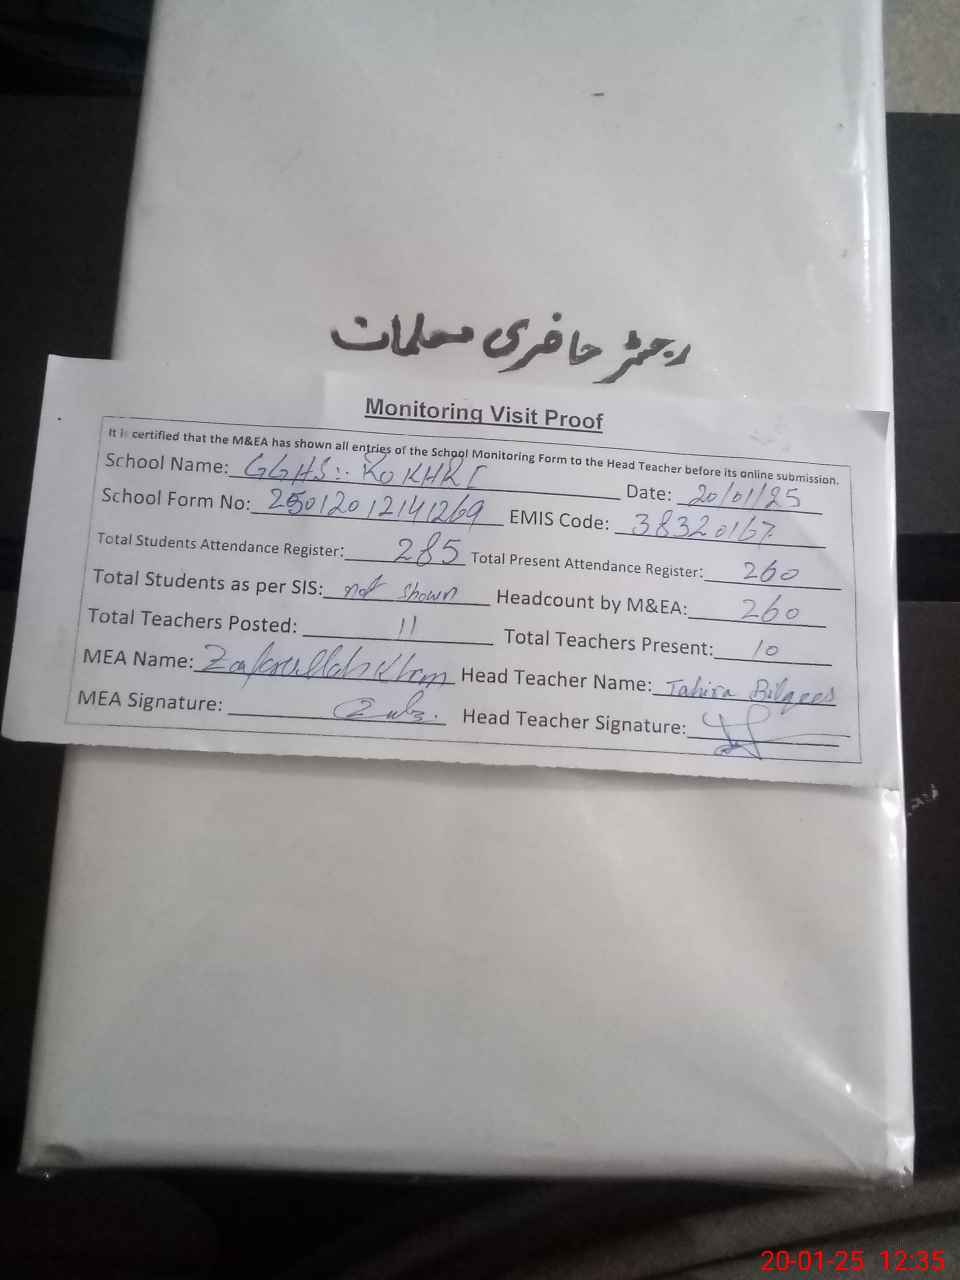 رجسٹر حاضری معلمات
Monitoring Visit Proof
It is certified that the M&EA has shown all entries of the School Monitoring Form to the Head Teacher before its online submission.
School Name: GGHS:- KOKHRI Date: 20/01/25
School Form No: 25012012141269 EMIS Code: 38320167
Total Students Attendance Register: 285 Total Present Attendance Register: 260
Total Students as per SIS: not shown Headcount by M&EA: 260
Total Teachers Posted: 11 Total Teachers Present: 10
MEA Name: Head Teacher Name: Tahira Bilqees
MEA Signature: Head Teacher Signature:
20-01-25 12:35